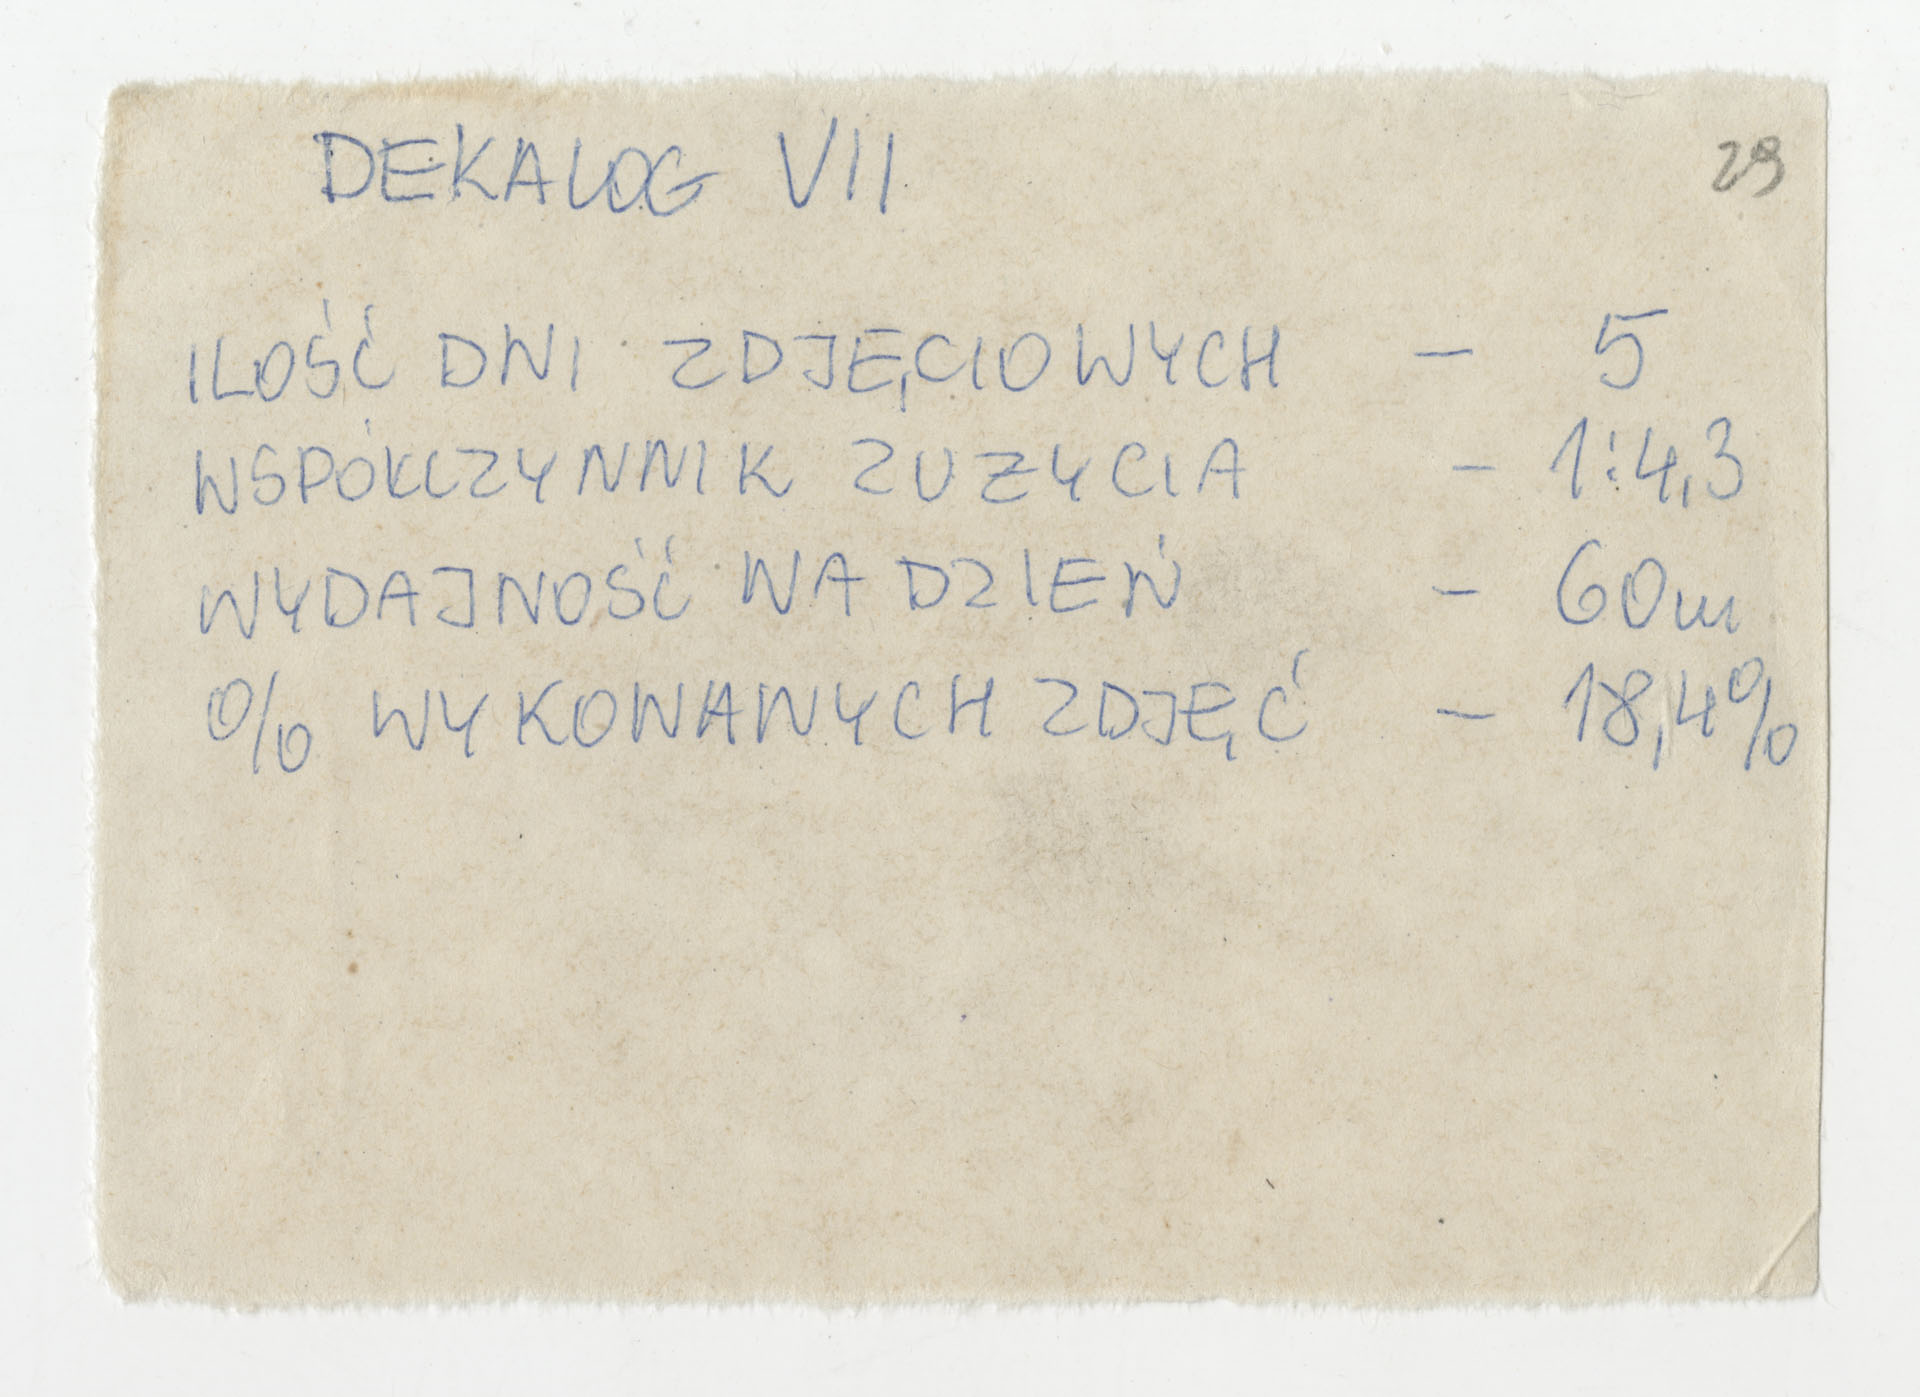 DEKALOG VII
29
ILOŚĆ DNI ZDJĘCIOWYCH - 5
WSPÓŁCZYNNIK ZUŻYCIA - 1:4,3
WYDAJNOŚĆ NA DZIEŃ - 60m
% WYKONANYCH ZDJĘĆ - 18,4%